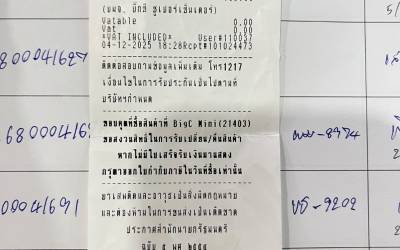 (บมจ. บิ๊กซี ซูเปอร์เซ็นเตอร์)
Vatable 0.00
Vat 0.00
*VAT INCLUDED* User#110037
04-12-2025 18:28 Rcpt#101024473
ติดต่อสอบถามข้อมูลเพิ่มเติม โทร1217
เงื่อนไขในการรับประกันเป็นไปตามที่
บริษัทกำหนด
ขอบคุณที่ซื้อสินค้าที่ BigC Mini(21403)
ขอสงวนสิทธิ์ในการรับเปลี่ยน/คืนสินค้า
หากไม่มีใบเสร็จรับเงินมาแสดง
กรุณาออกใบกำกับภาษีในวันที่ซื้อเท่านั้น
ยาเสพติดและอาวุธเป็นสิ่งผิดกฎหมาย
และต้องห้ามในการขนส่งเป็นเด็ดขาด
ประกาศสำนักนายกรัฐมนตรี
800041627
-8974
6800004169
บร-9202